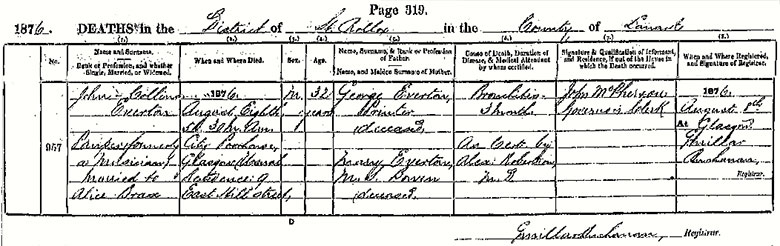 Page 319.
1876. DEATHS in the District of St. Rollox in the County of Lanark
(1.) (2.) (3.) (4.) (5.) (6.) (7.) (8.)
No. Name and Surname. Rank or Profession, and whether Single, Married, or Widowed. When and Where Died. Sex. Age. Name, Surname, & Rank or Profession of Father. Name, and Maiden Surname of Mother. Cause of Death, Duration of Disease, & Medical Attendant by whom certified. Signature & Qualification of Informant, and Residence, if out of the House in which the Death occurred. When and Where Registered, and Signature of Registrar.
957
John Collins
Everton
(formerly
a Musician)
Married to
Alice
1876,
August Eighth
City Poorhouse,
Glasgow
Residence 9
East Hill Street,
M.
32
years
George Everton,
Printer
deceased
Mary Everton,
M.S.
deceased.
Bronchitis
3 months
As Cert by
Alexr Robertson
M.D.
John McPherson
Governor's Clerk
1876,
August 8th
At Glasgow
Buchanan,
Registrar.
D
Buchanan, Registrar.